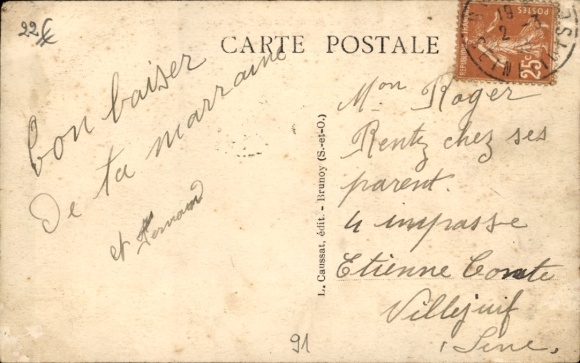 22f
CARTE POSTALE
POSTES
25c
bon baiser
de ta marraine
et Fernand
L. Caussat, édit. - Brunoy (S.-et-O.)
Mon Roger
Rentz chez ses
parent.
4 impasse
Etienne Comte
Villejuif
Seine.
91